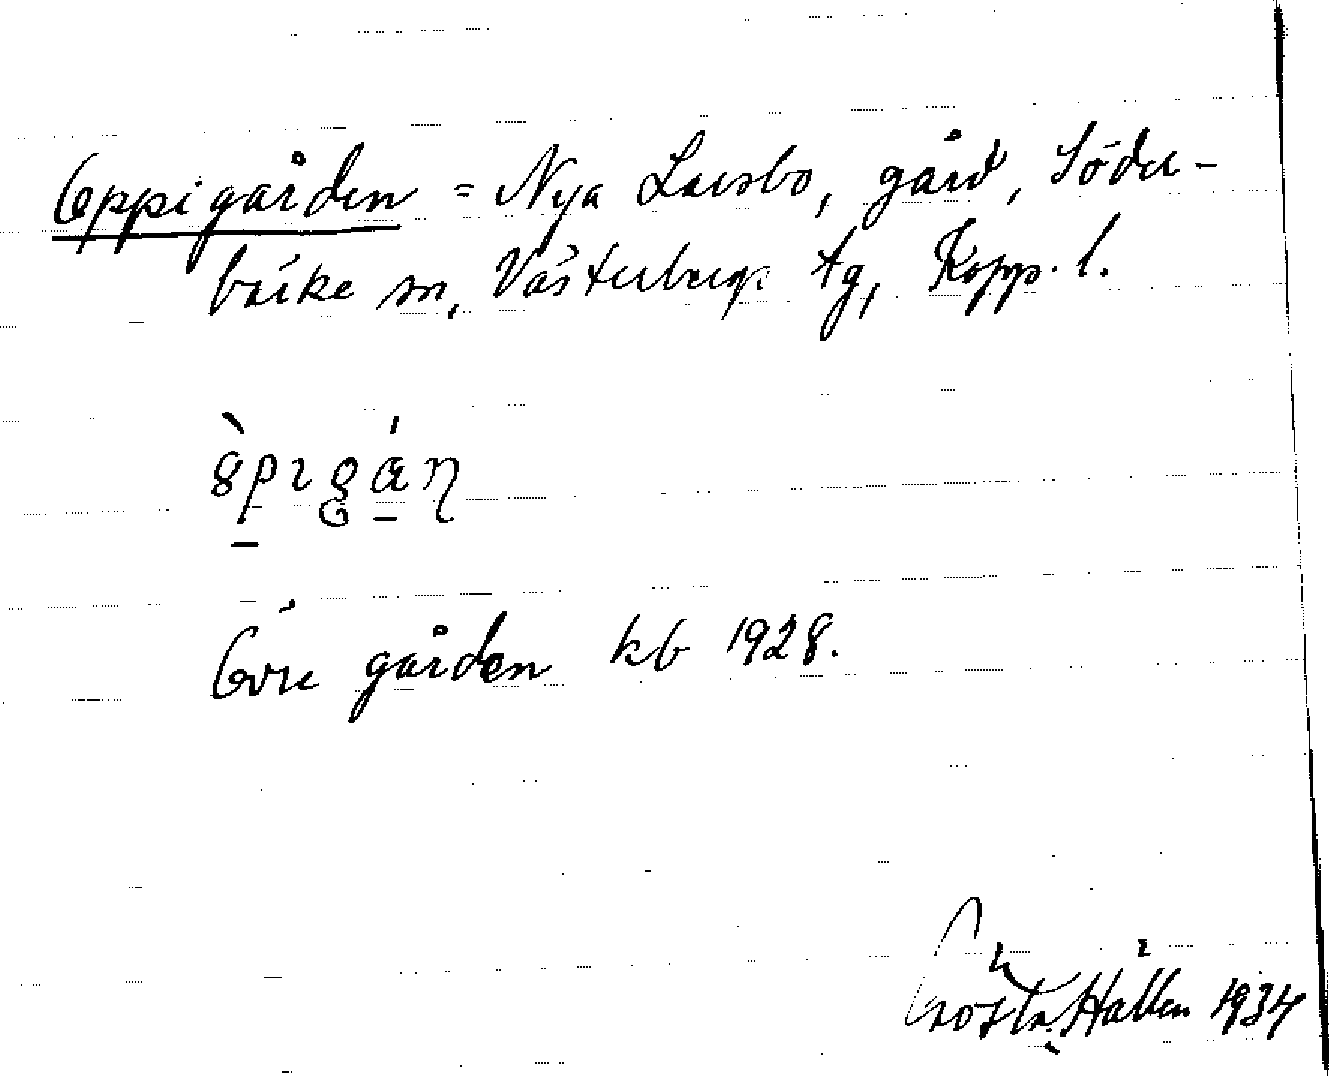 Oppigården = Nya Larsbo, gård, Söder-
bärke sn, Västerbergs tg, Kopp. l.
Övre gården kb 1928.
Gösta Hallén 1934